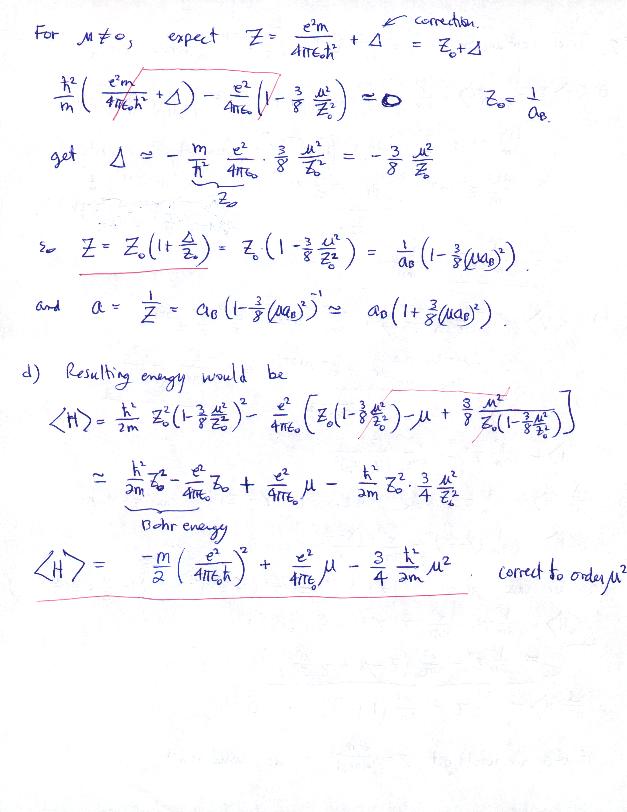 For μ≠0, expect Z = e²m/4πε₀ħ² + Δ ← correction. = Z₀+Δ
ħ²/m ( e²m/4πε₀ħ² + Δ ) − e²/4πε₀ ( 1 − 3/8 μ²/Z₀² ) ≃ 0   Z₀ = 1/a_B.
get Δ ≃ − m/ħ² e²/4πε₀ · 3/8 μ²/Z₀² = − 3/8 μ²/Z₀
Z₀
so Z = Z₀(1 + Δ/Z₀) = Z₀(1 − 3/8 μ²/Z₀²) = 1/a_B (1 − 3/8 (μa_B)²).
and a = 1/Z = a_B (1 − 3/8 (μa_B)²)⁻¹ ≃ a_B (1 + 3/8 (μa_B)²).
d) Resulting energy would be
⟨H⟩ = ħ²/2m Z₀² (1 − 3/8 μ²/Z₀²)² − e²/4πε₀ [ Z₀(1 − 3/8 μ²/Z₀²) − μ + 3/8 μ²/Z₀(1 − 3/8 μ²/Z₀²) ]
≃ ħ²/2m Z₀² − e²/4πε₀ Z₀ + e²/4πε₀ μ − ħ²/2m Z₀² · 3/4 μ²/Z₀²
Bohr energy
⟨H⟩ = −m/2 ( e²/4πε₀ħ )² + e²/4πε₀ μ − 3/4 ħ²/2m μ². correct to order μ²